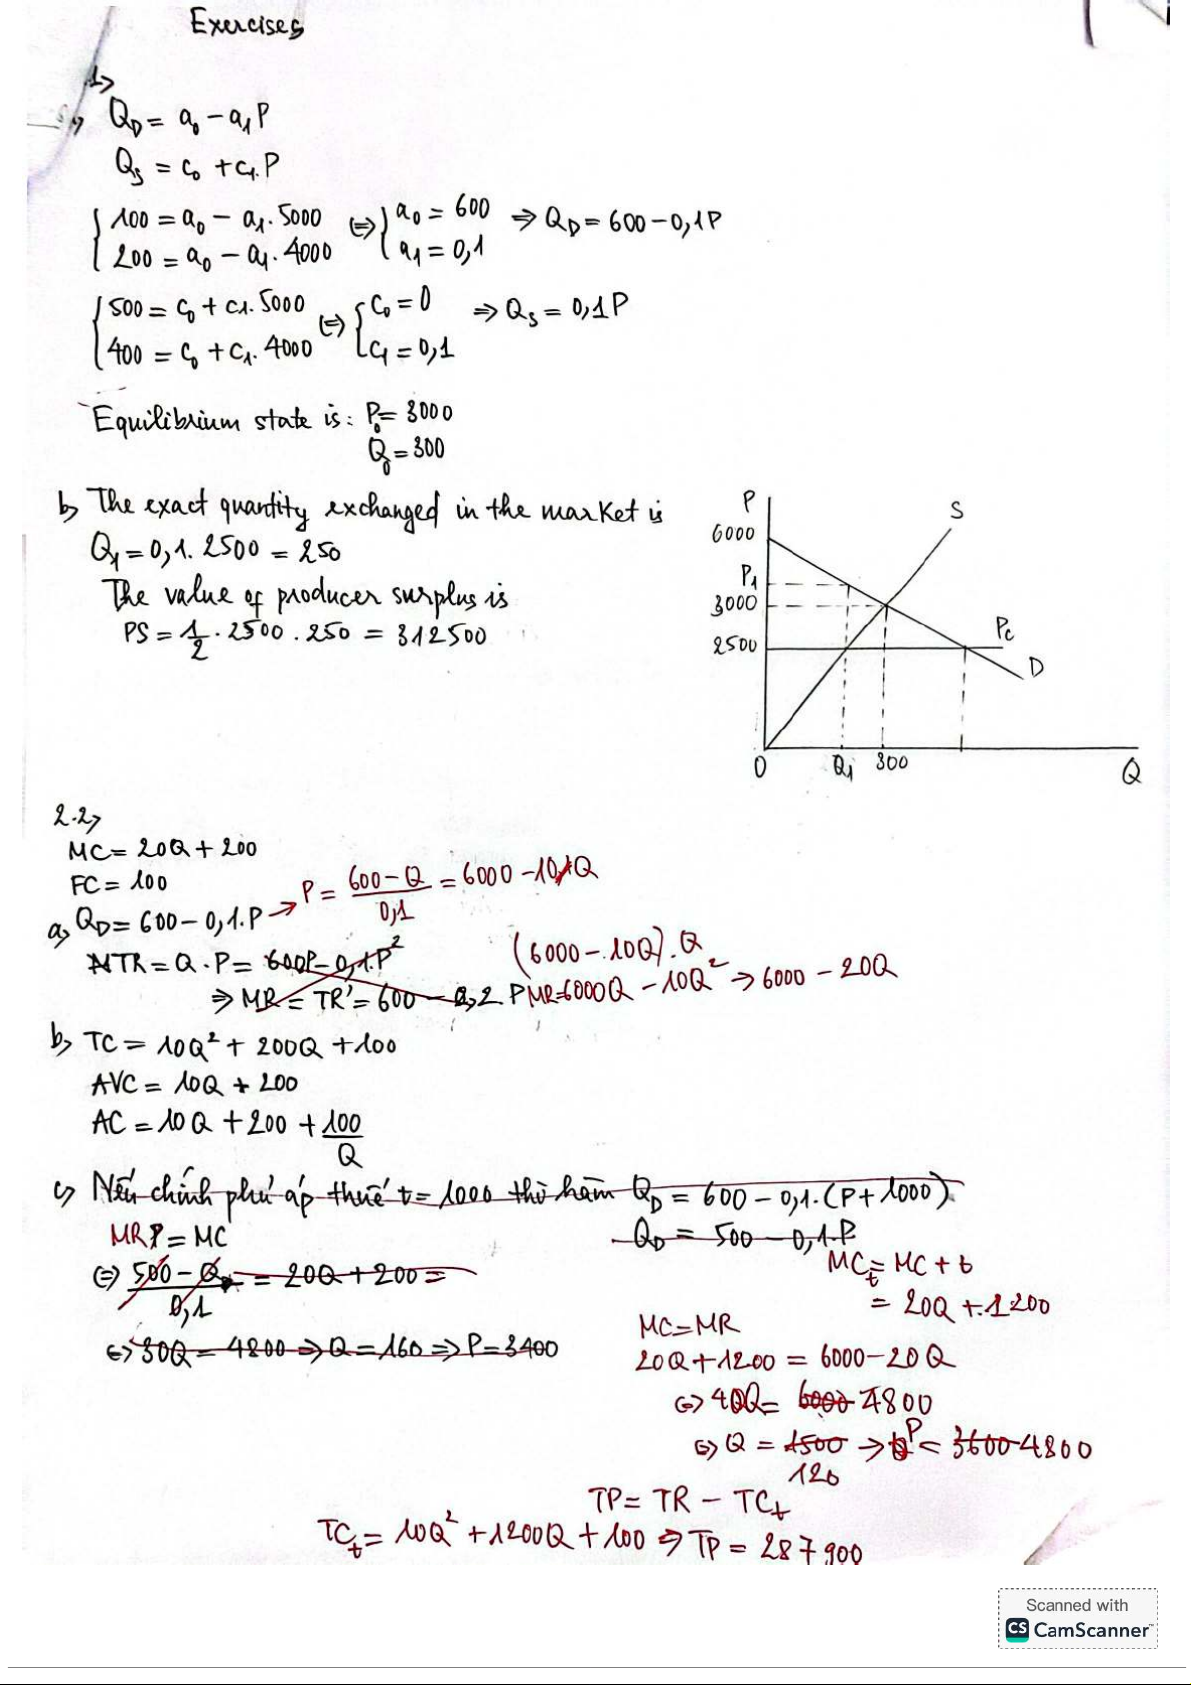 Exercises
1>
Q_D = a_0 - a_1 P
Q_S = c_0 + c_1.P
{ 100 = a_0 - a_1.5000 ⇔ { a_0 = 600 ⇒ Q_D = 600 - 0,1P
200 = a_0 - a_1.4000 a_1 = 0,1
{ 500 = c_0 + c_1.5000 ⇔ { c_0 = 0 ⇒ Q_S = 0,1P
400 = c_0 + c_1.4000 c_1 = 0,1
Equilibrium state is: P_0 = 3000
Q_0 = 300
b> The exact quantity exchanged in the market is
Q_1 = 0,1.2500 = 250
The value of producer surplus is
PS = 1/2 . 2500 . 250 = 312500
P
S
6000
P_1
3000
2500
P_c
D
0
Q_1
300
Q
2.2>
MC = 20Q + 200
FC = 100
a> Q_D = 600 - 0,1.P → P = (600 - Q)/0,1 = 6000 - 10Q
TR = Q.P = 600P - 0,1.P² (6000 - 10Q).Q
⇒ MR = TR' = 600 - 0,2 P MR=6000Q - 10Q² → 6000 - 20Q
b> TC = 10Q² + 200Q + 100
AVC = 10Q + 200
AC = 10Q + 200 + 100/Q
c> Nếu chính phủ áp thuế t = 1000 thì hàm Q_D = 600 - 0,1.(P+1000)
MR = MC
Q_D = 500 - 0,1.P
⇔ (500 - Q)/0,1 = 20Q + 200 =
⇔ 30Q = 4800 ⇒ Q = 160 ⇒ P = 3400
MC_t = MC + t
= 20Q + 1200
MC = MR
20Q + 1200 = 6000 - 20Q
⇔ 40Q = 6000 4800
⇔ Q = 1500 → P = 3600 4800
120
TP = TR - TC_t
TC_t = 10Q² + 1200Q + 100 ⇒ TP = 287900
Scanned with
CS CamScanner